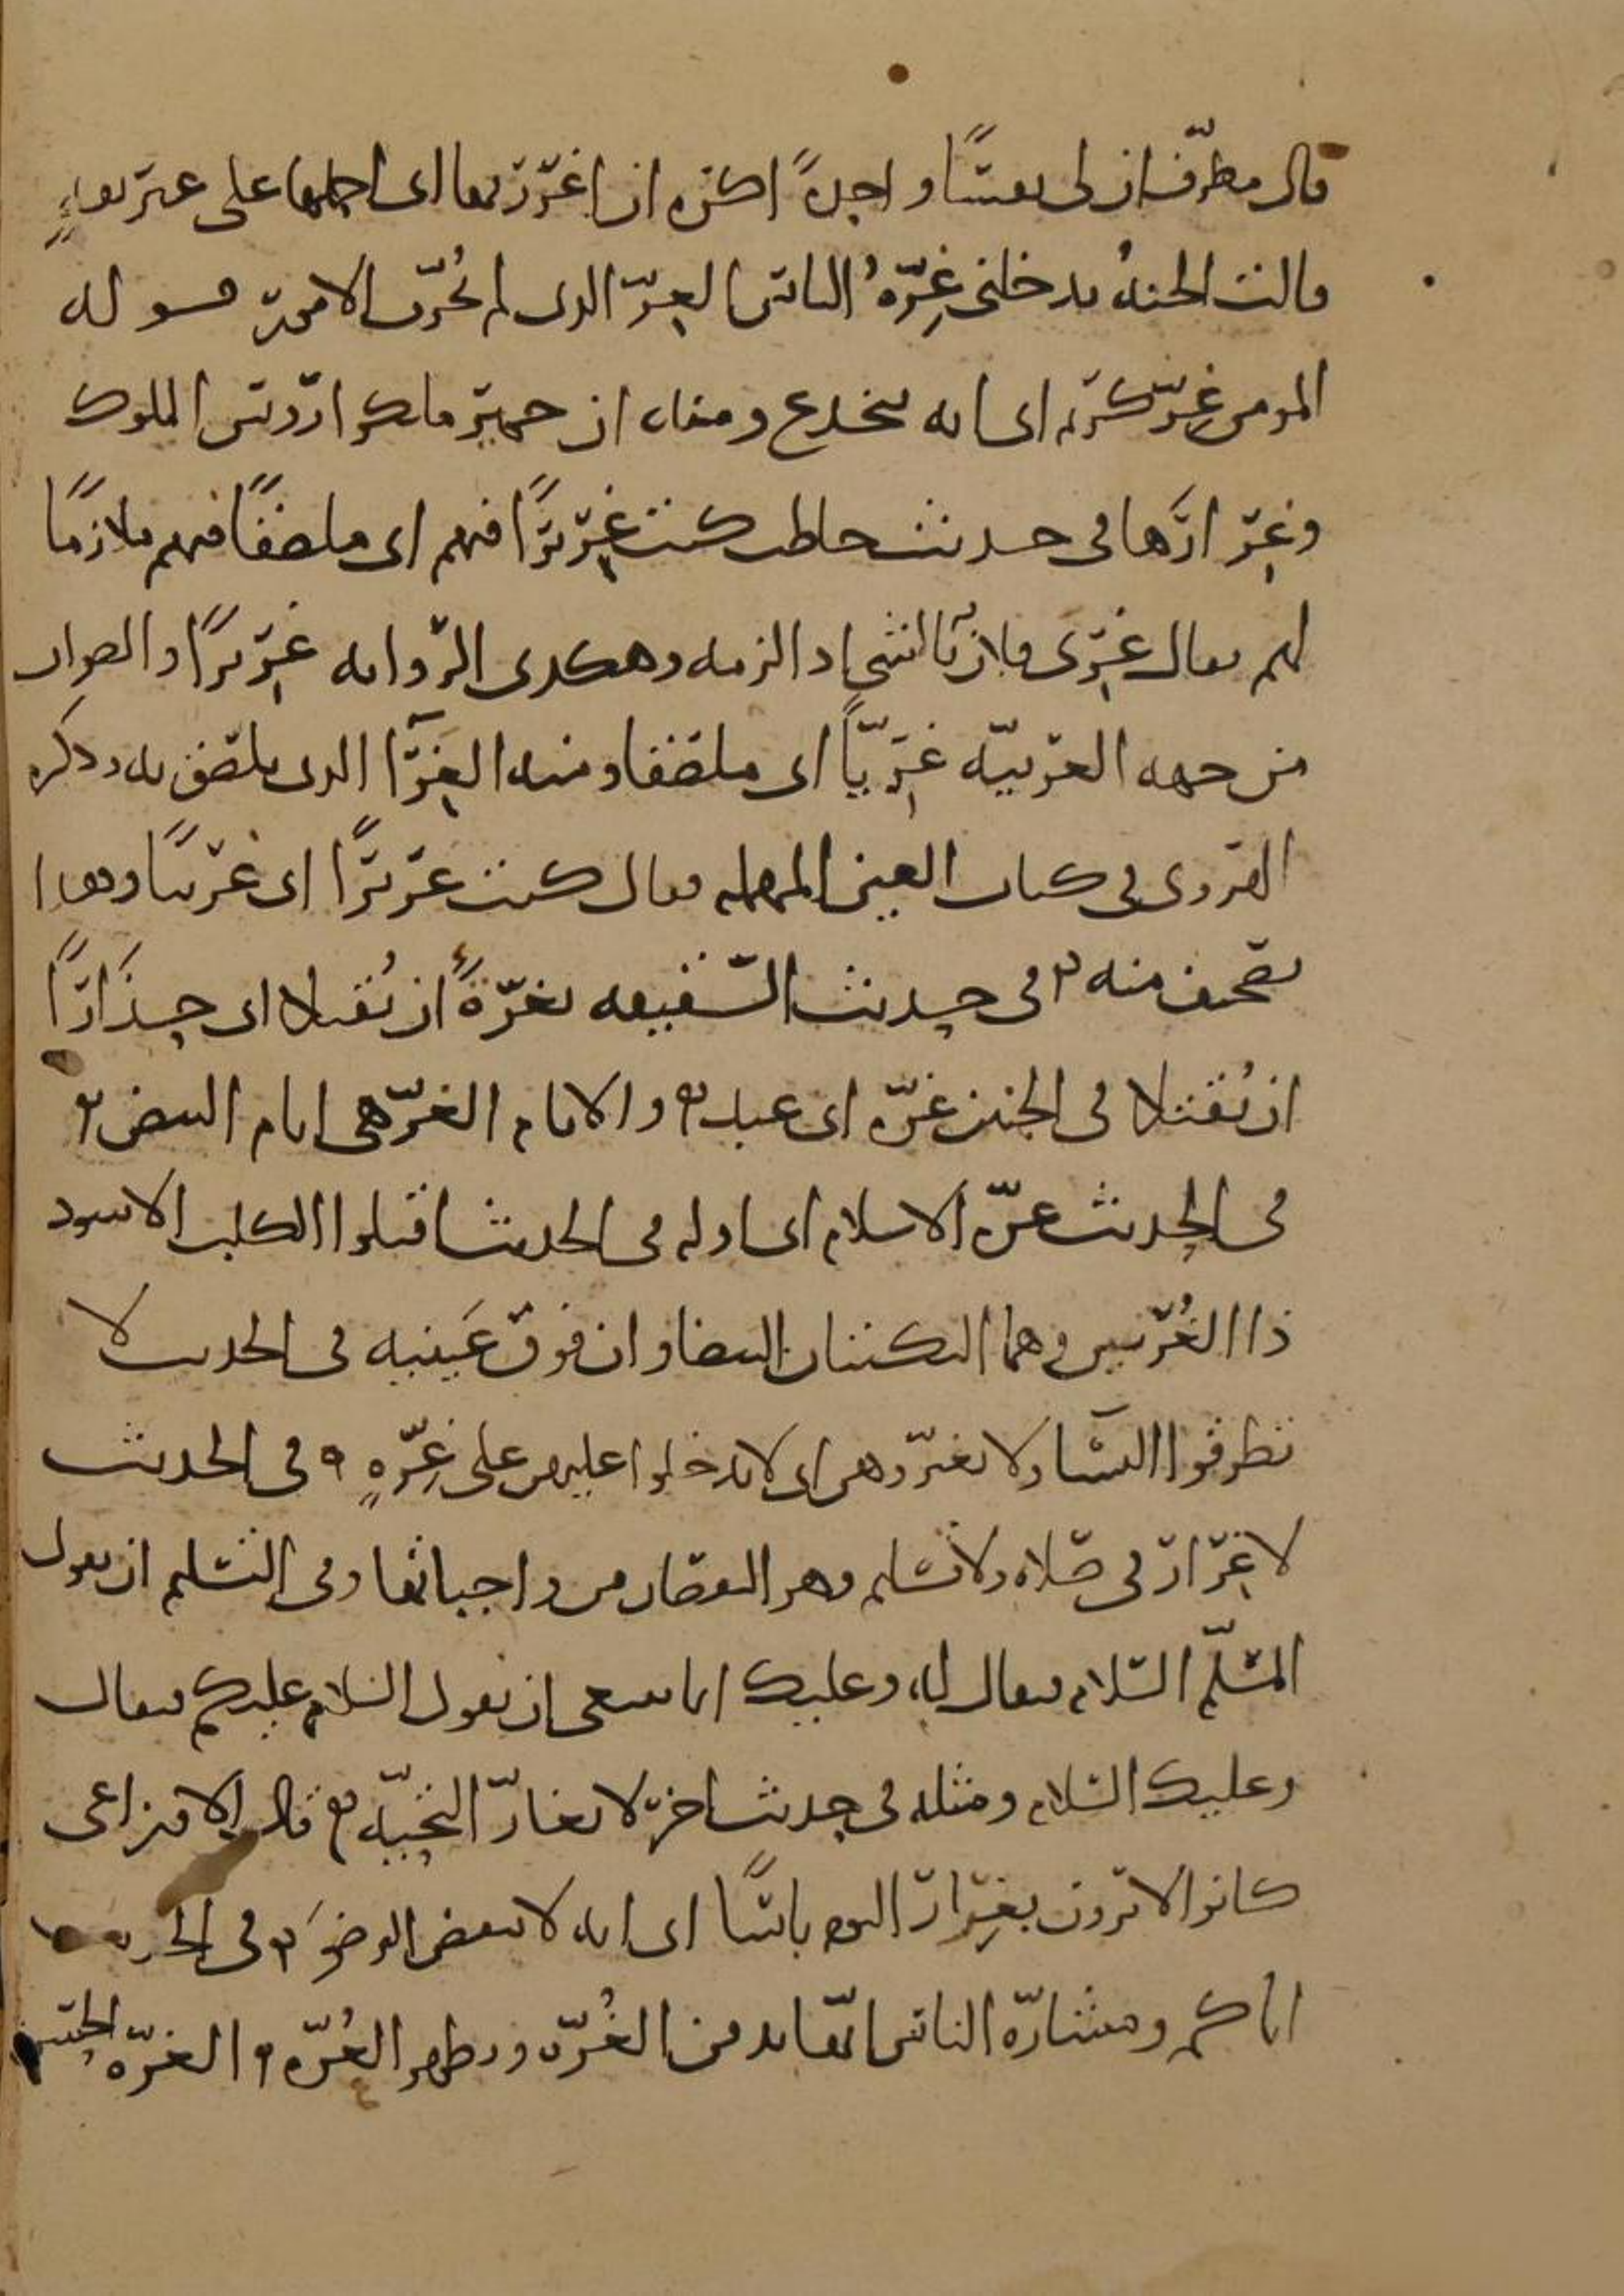 قال مطرف ان لى نفسا واحدة اكره ان اغرر بها اى احملها على غير
قالت الجنة يدخلنى غرة الناس الغر الذى لم يجرب الامور قوله
المومن غر كريم اى انه ينخدع ومنه ان حمير ملكوا رؤس الملوك
وغرارها فى حديث حاطب كنت غريرا فيهم اى ملصقا فيهم ملازما
لهم يقال غرى فلان بالشى اذ الزمه وهكذى الرواية غريرا والصواب
من جهة العربية غريا اى ملصقا ومنه الغرا الذى يلصق به وذكره
الهروى فى كتاب العين المهملة فقال كنت عزيزا اى غريبا وهذا
تصحيف منه فى حديث السقيفة تغرة ان يقتلا اى حذارا
ان يقتلا فى الجنين غرة اى عبد والايام الغر هى ايام البيض
فى الحديث غرة الاسلام اى اوله فى الحديث اقتلوا الكلب الاسود
ذا الغرتين وهما النكتتان البيضاوان فوق عينيه فى الحديث لا
تطرقوا النسا ولا تغتروهن اى لا تدخلوا عليهن على غرة فى الحديث
لا غرار فى صلاة ولا تسليم وهو النقصان من واجباتها وفى التسليم ان يقول
المسلم السلام فيقال له وعليك انما ينبغى ان يقول السلام عليكم فيقال
وعليك السلام ومثله فى حديث اخر لا تغار التحية قال الاوزاعى
كانوا لا يرون بغرار النوم باسا اى انه لا ينقض الوضو فى الحديث
اياكم ومشارة الناس انها تدفن الغرة وتظهر العرة الغرة الحسن